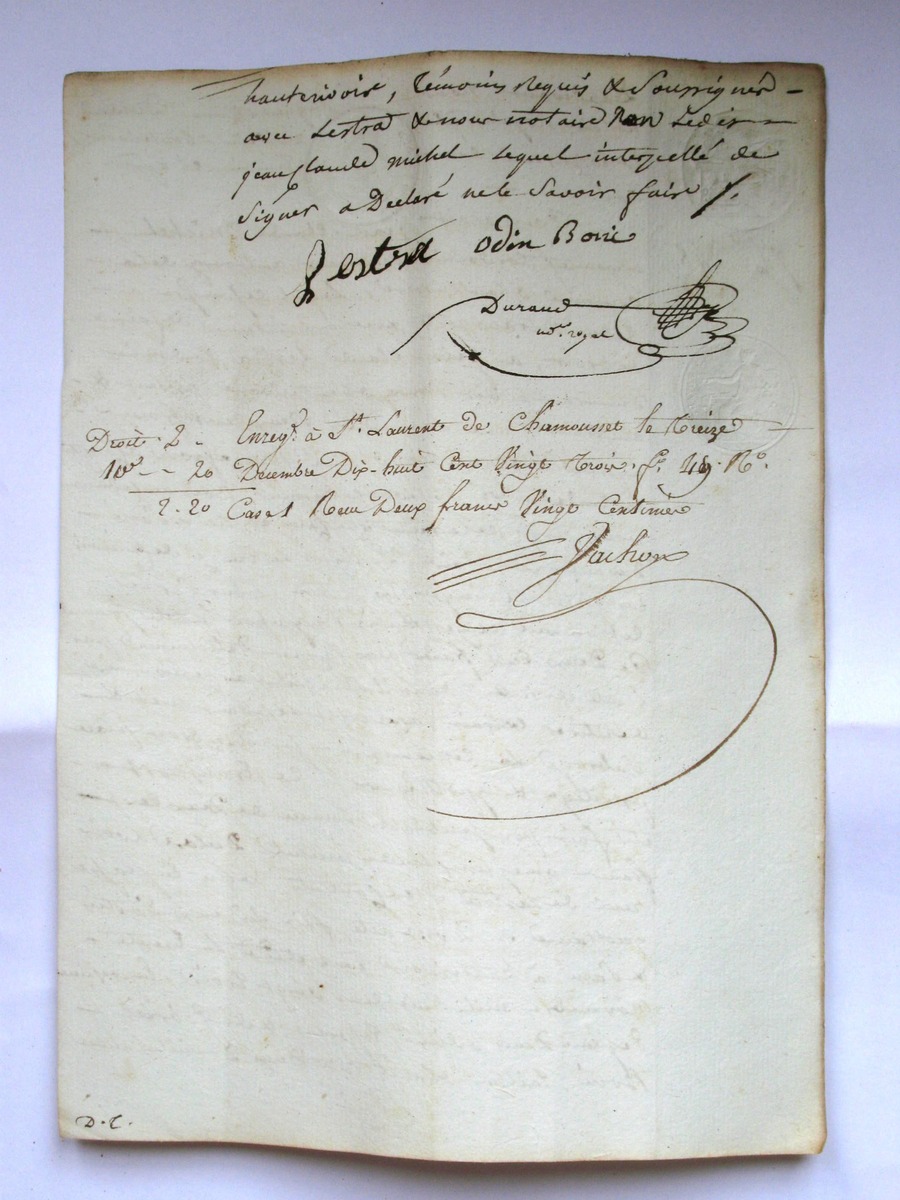 hauterivoire, témoins Requis & Soussignés
avec Lestra & nous notaire non Ledit
jean Claude michel Lequel interpellé de
Signer a Declaré ne le Savoir faire /.
Lestra odin Borie
Durand
nore. royal
Enregt. à St. Laurent de Chamousset le treize
Droit 2 -
Décembre Dix-huit Cent Vingt trois. fo. 49. Ro.
10me - - 20
Case 1 Reçu Deux francs Vingt Centimes
2 - 20
Vachon
D. C.